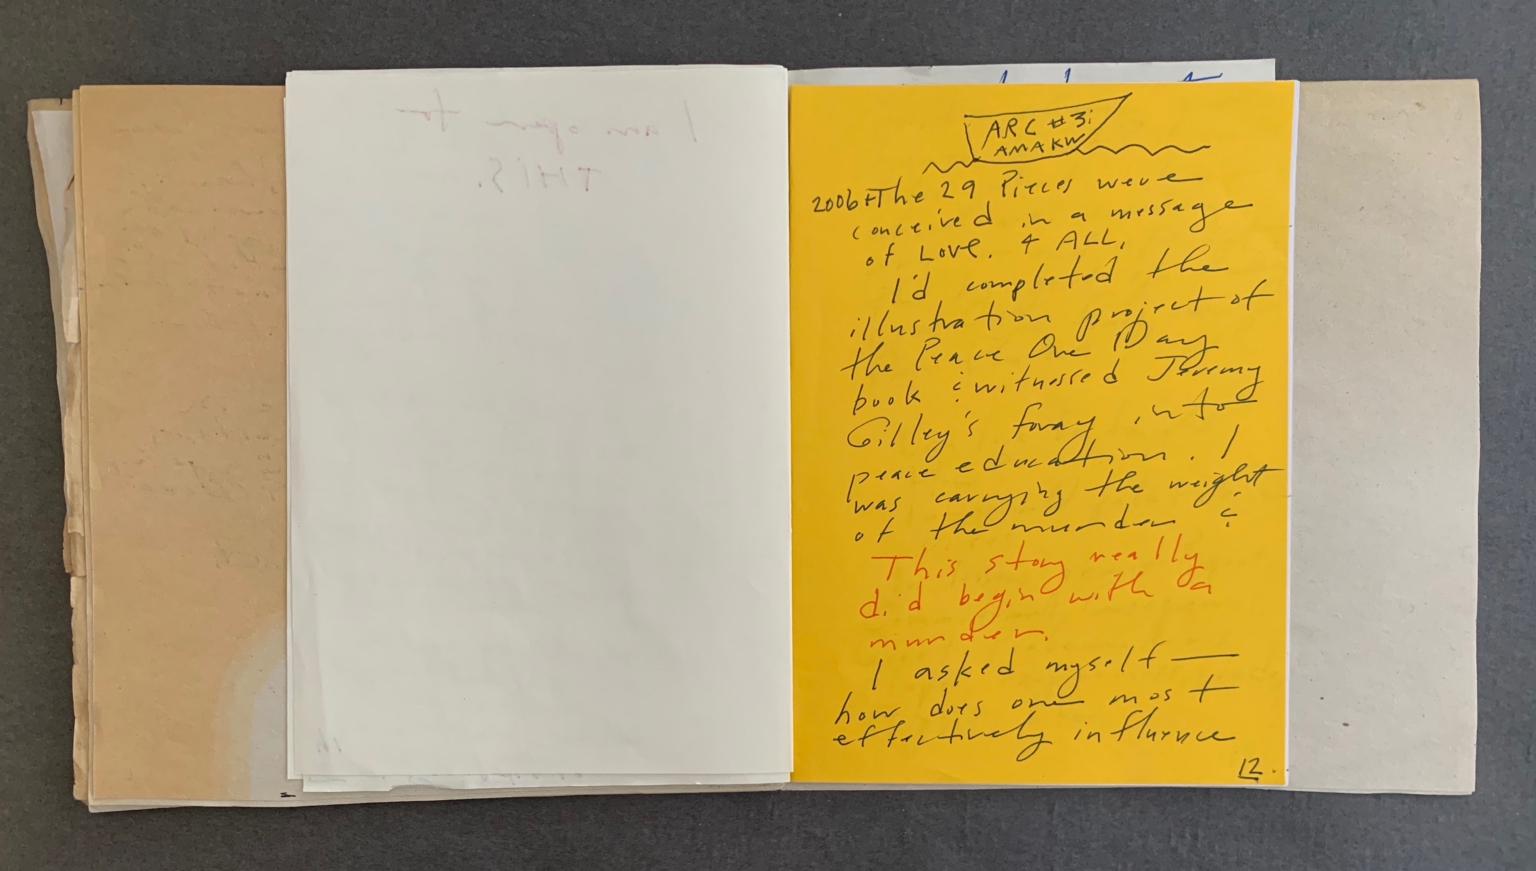 I am open to
THIS.
ARC #3:
AMAKW
2006 + The 29 Pieces were
conceived in a message
of Love. 4 ALL.
I'd completed the
illustration project of
the Peace One Day
book & witnessed Jeremy
Gilley's foray into
peace education. I
was carrying the weight
of the murder &
This story really
did begin with a
murder.
I asked myself —
how does one most
effectively influence
12.